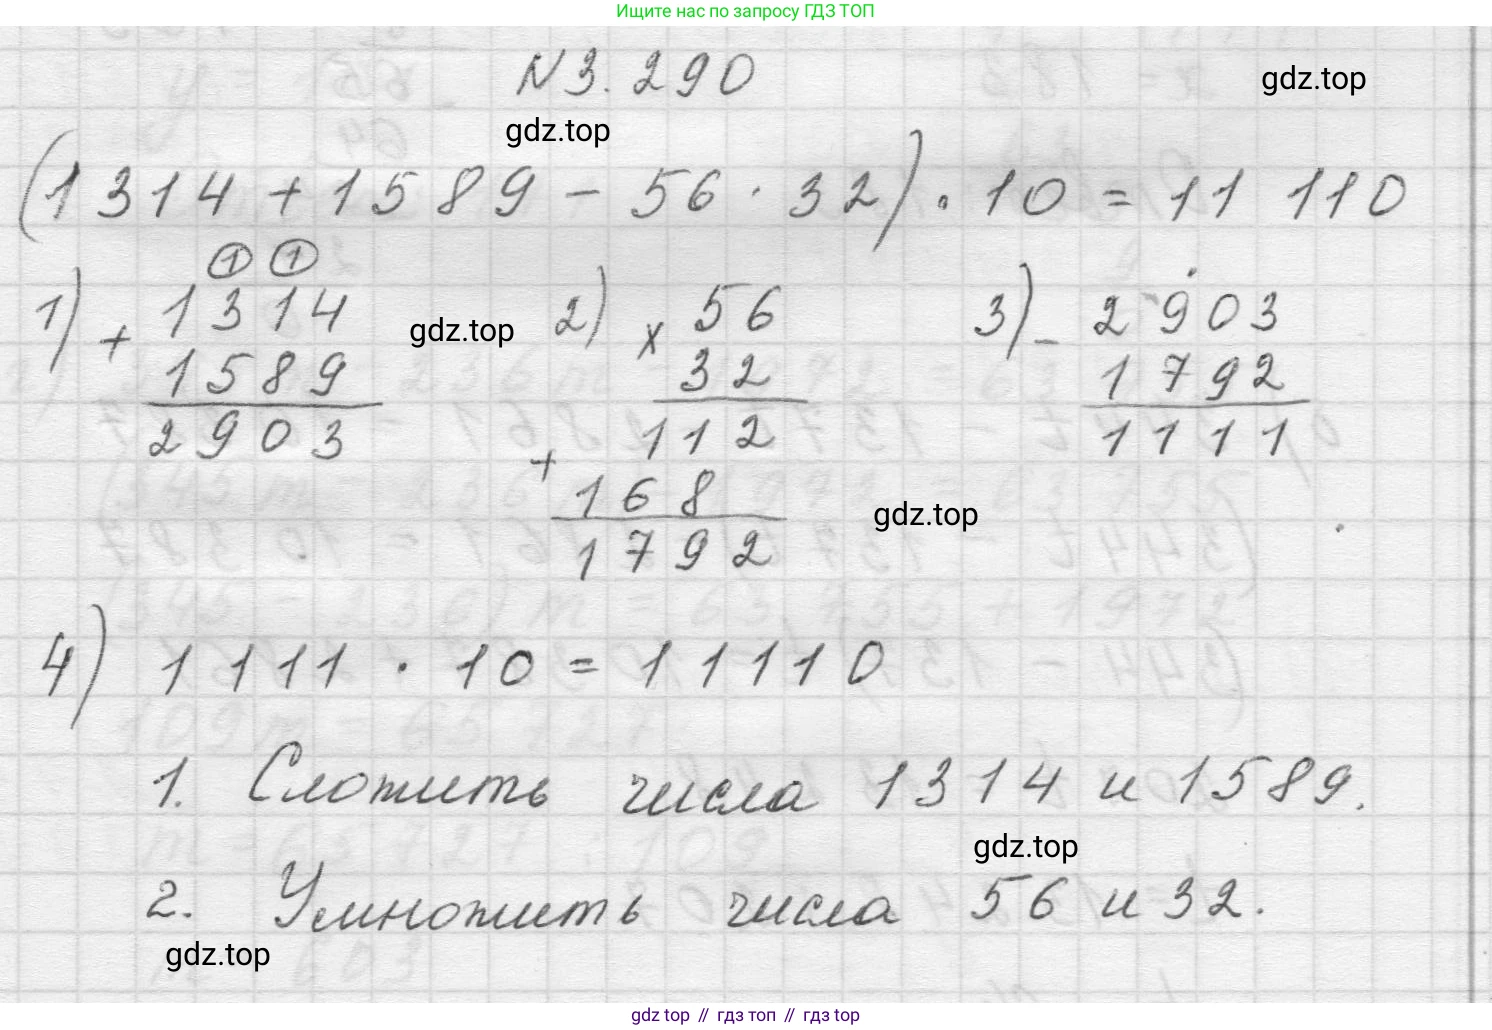 Ищите нас по запросу ГДЗ ТОП
N 3.290
gdz.top
gdz.top
(1314 + 1589 - 56 · 32) · 10 = 11 110
1 1
1) + 1314
1589
2903
gdz.top
2) x 56
32
112
+ 168
1792
3) - 2903
1792
1111
gdz.top
4) 1111 · 10 = 11110
1. Сложить числа 1314 и 1589.
gdz.top
2. Умножить числа 56 и 32.
gdz.top
gdz top // гдз топ // гдз top